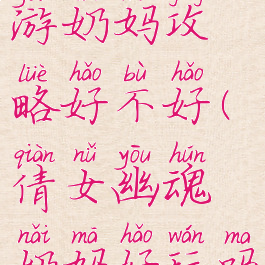 游奶妈攻
lüè hǎo bù hǎo
略好不好(
qiàn nǚ yōu hún
倩女幽魂
nǎi mā hǎo wán ma
奶妈好玩吗